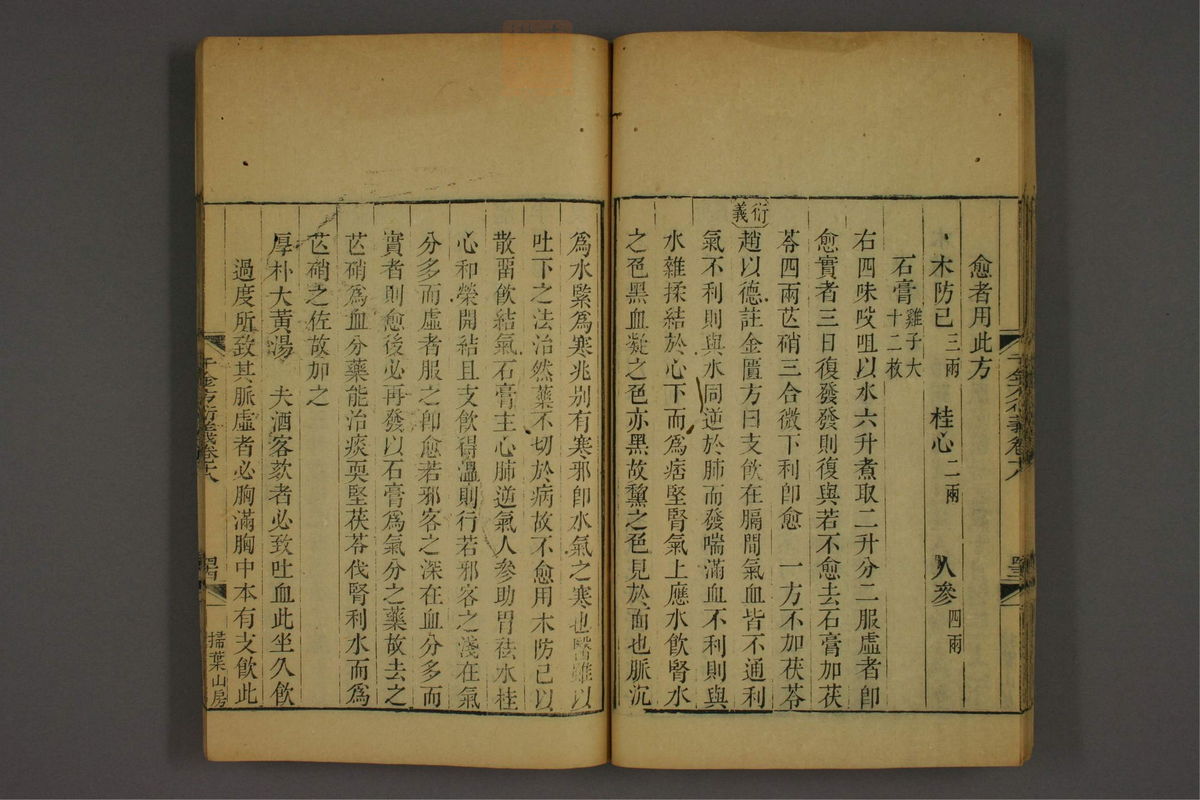 愈者用此方
木防己三兩 桂心二兩 人參四兩
石膏雞子大十二枚
右四味㕮咀以水六升煮取二升分二服虛者卽
愈實者三日復發發則復與若不愈去石膏加茯
苓四兩芒硝三合微下利卽愈 一方不加茯苓
衍義
趙以德註金匱方曰支飲在膈間氣血皆不通利
氣不利則與水同逆於肺而發喘滿血不利則與
水雜揉結於心下而爲痞堅腎氣上應水飲腎水
之色黑血凝之色亦黑故黧之色見於面也脈沉
爲水緊爲寒兆別有寒邪卽水氣之寒也醫雖以
吐下之法治然藥不切於病故不愈用木防己以
散畱飲結氣石膏主心肺逆氣人參助胃祛水桂
心和榮開結且支飲得溫則行若邪客之淺在氣
分多而虛者服之卽愈若邪客之深在血分多而
實者則愈後必再發以石膏爲氣分之藥故去之
芒硝爲血分藥能治痰耎堅茯苓伐腎利水而爲
芒硝之佐故加之
厚朴大黃湯 夫酒客欬者必致吐血此坐久飲
過度所致其脈虛者必胸滿胸中本有支飲此
千金方衍義卷十八
掃葉山房